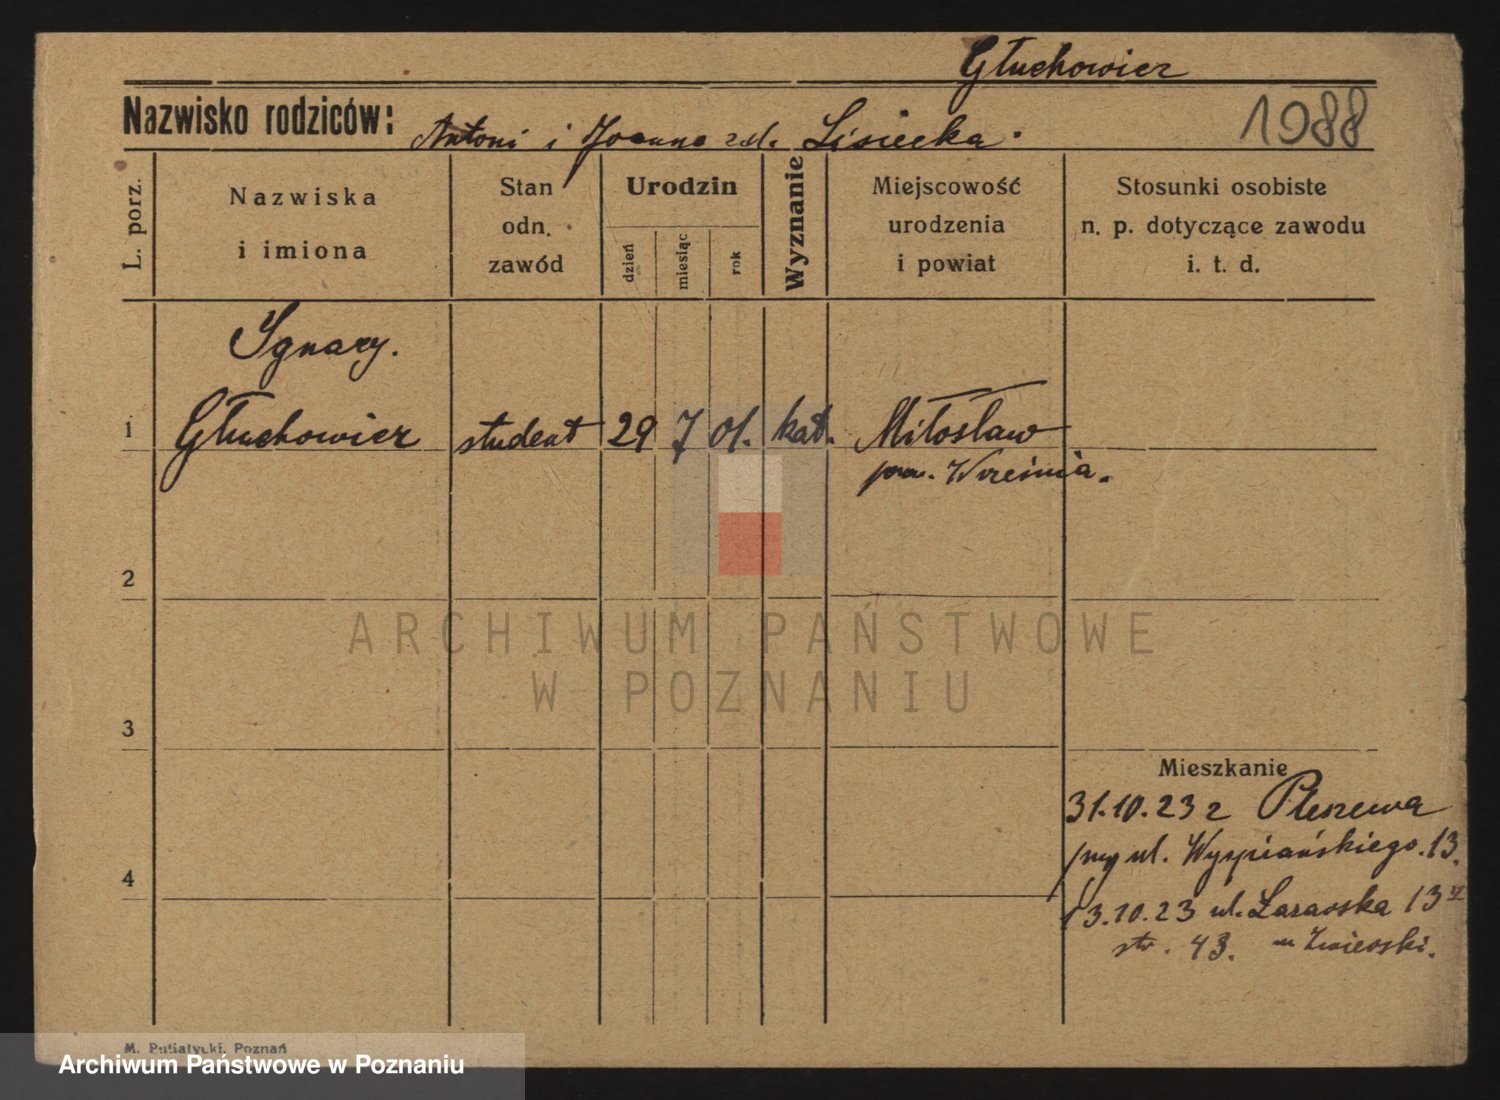 Głuchowicz
Nazwisko rodziców: Antoni i Joanna zd. Lisiecka.
1988
L. porz.
Nazwiska
i imiona
Stan
odn.
zawód
Urodzin
dzień
miesiąc
rok
Wyznanie
Miejscowość
urodzenia
i powiat
Stosunki osobiste
n. p. dotyczące zawodu
i. t. d.
Ignacy.
1 Głuchowicz student 29 7 01. kat. Miłosław
pow. Września.
2
ARCHIWUM PAŃSTWOWE
W POZNANIU
3
Mieszkanie
31.10.23 z Pleszewa
przy ul. Wyspiańskiego 13.
4
13.10.23 ul. Łazarska 13
str. 43.
M. Putiatycki, Poznań
Archiwum Państwowe w Poznaniu